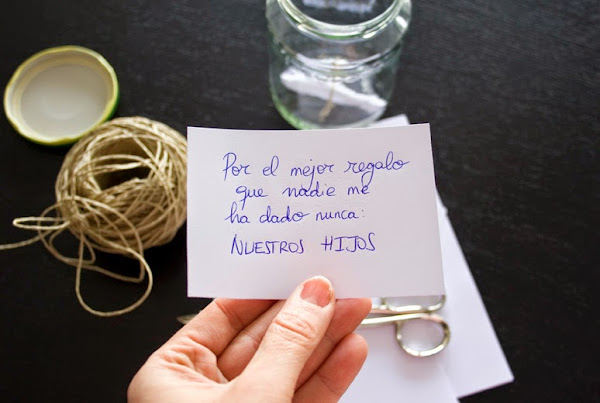 Por el mejor regalo
que nadie me
ha dado nunca:
NUESTROS HIJOS